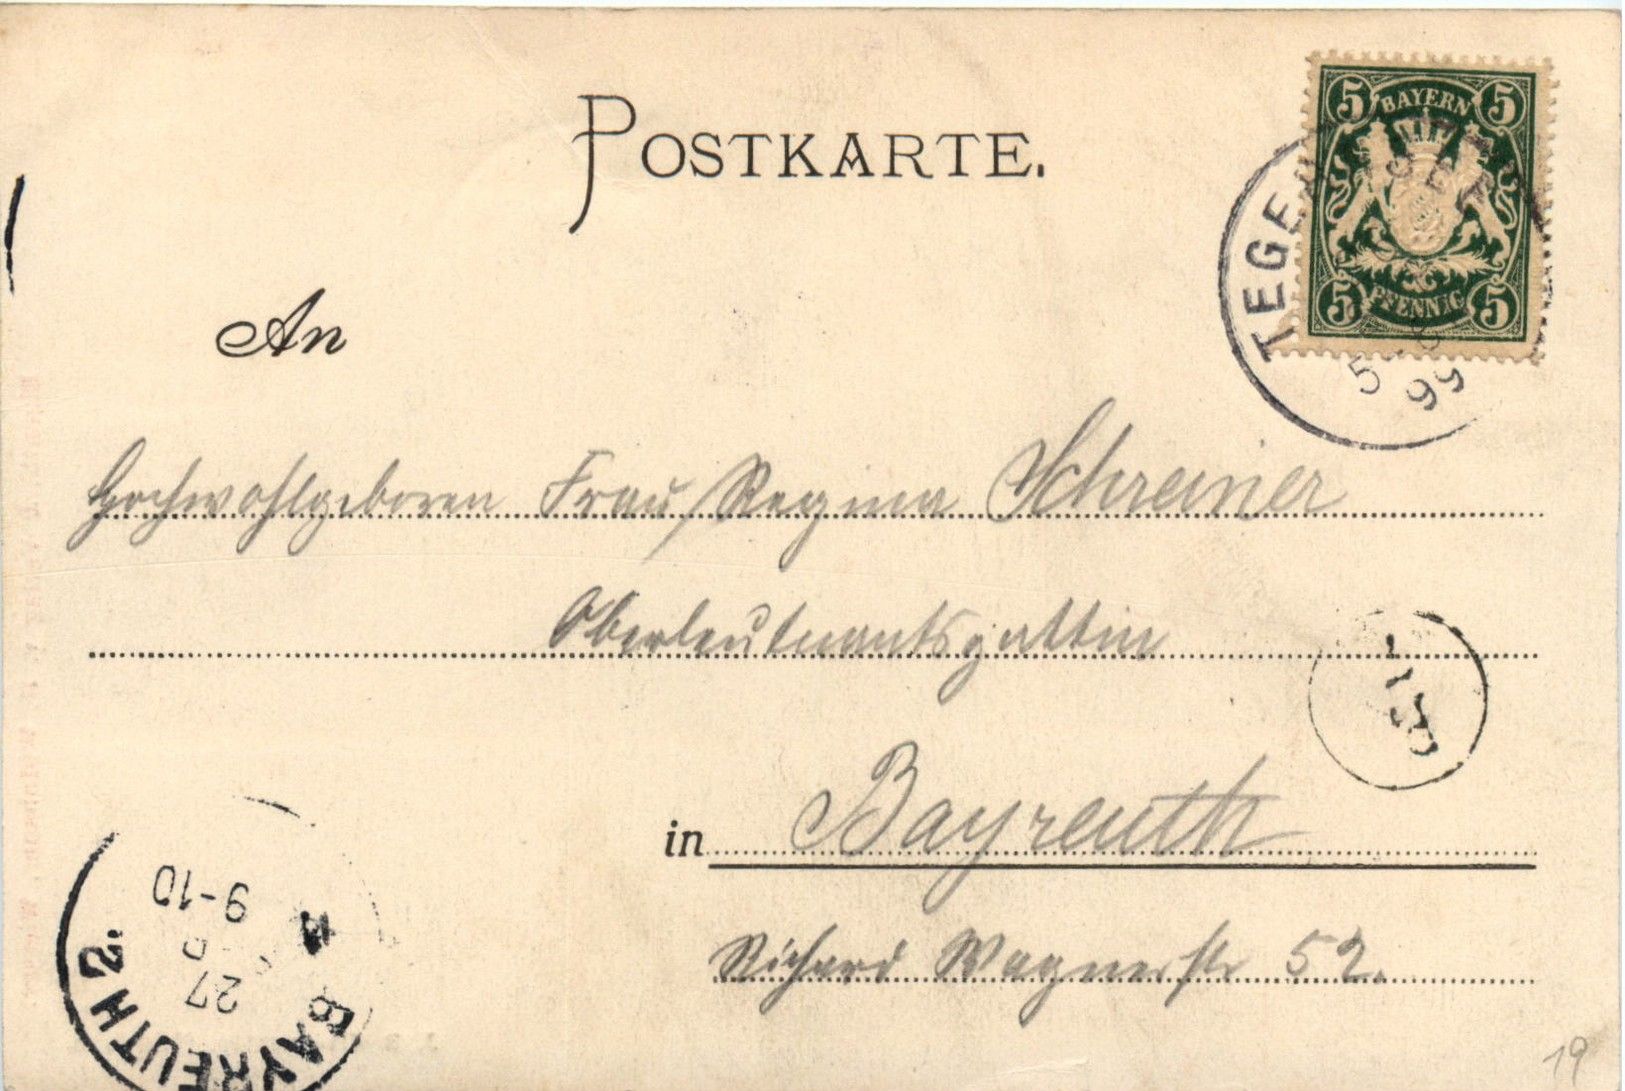 POSTKARTE.
5 BAYERN 5
5 PFENNIG 5
TEGERNSEE
5
99
An
Hochwohlgeboren Frau Regina Schreiner
Oberleutnantsgattin
in Bayreuth
Richard Wagnerstr 52.
BAYREUTH 2.
27
9-10
19